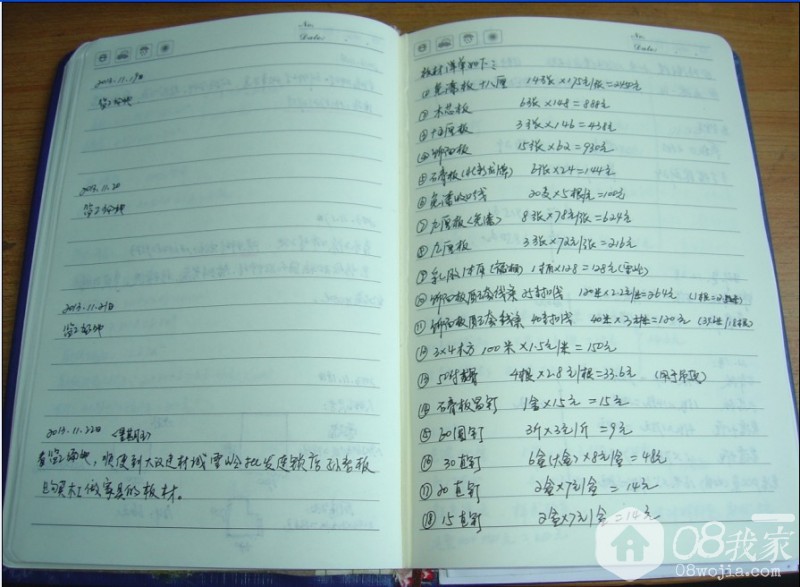 No.
Date.
2013.11.19日
监工铺地
2013.11.20
监工铺地
2013.11.21日
监工铺地
2013.11.22日 (星期五)
监工铺地,顺便到大汉建材城雪
购买木工做家具的板材。
No.
Date.
板材清单如下:
①免漆板 十八厘 14张×175元/张=2450元
②木芯板 6张×148=888元
③十五厘板 3张×146=438元
④饰面板 15张×62=930元
⑤石膏板 6张×24=144元
⑥免漆收口线 20支×5元/支=100元
⑦九厘板(免漆) 8张×78元/张=624元
⑧九厘板 3张×72元/张=216元
⑨乳胶1桶 1桶×128=128元
⑩饰面板 线条 25 120米×2.2元/米=264元
⑪饰面板 线条 40 40米×3元/米=120元
⑫3×4木方 100米×1.5元/米=150元
⑬50 4根×2.8元/根=33.6元 (用于吊顶)
⑭石膏板 钉 1盒×15元=15元
⑮60圆钉 3斤×3元/斤=9元
⑯30直钉 6盒(大盒)×8元/盒=48元
⑰20直钉 2盒×7元/盒=14元
⑱15直钉 2盒×7元/盒=14元
08我家
08wojia.com